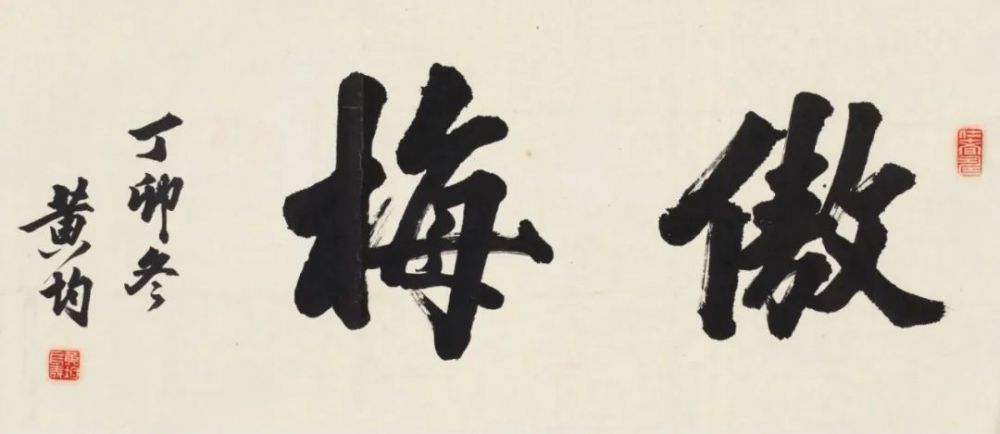 傲梅
丁卯冬
黄均